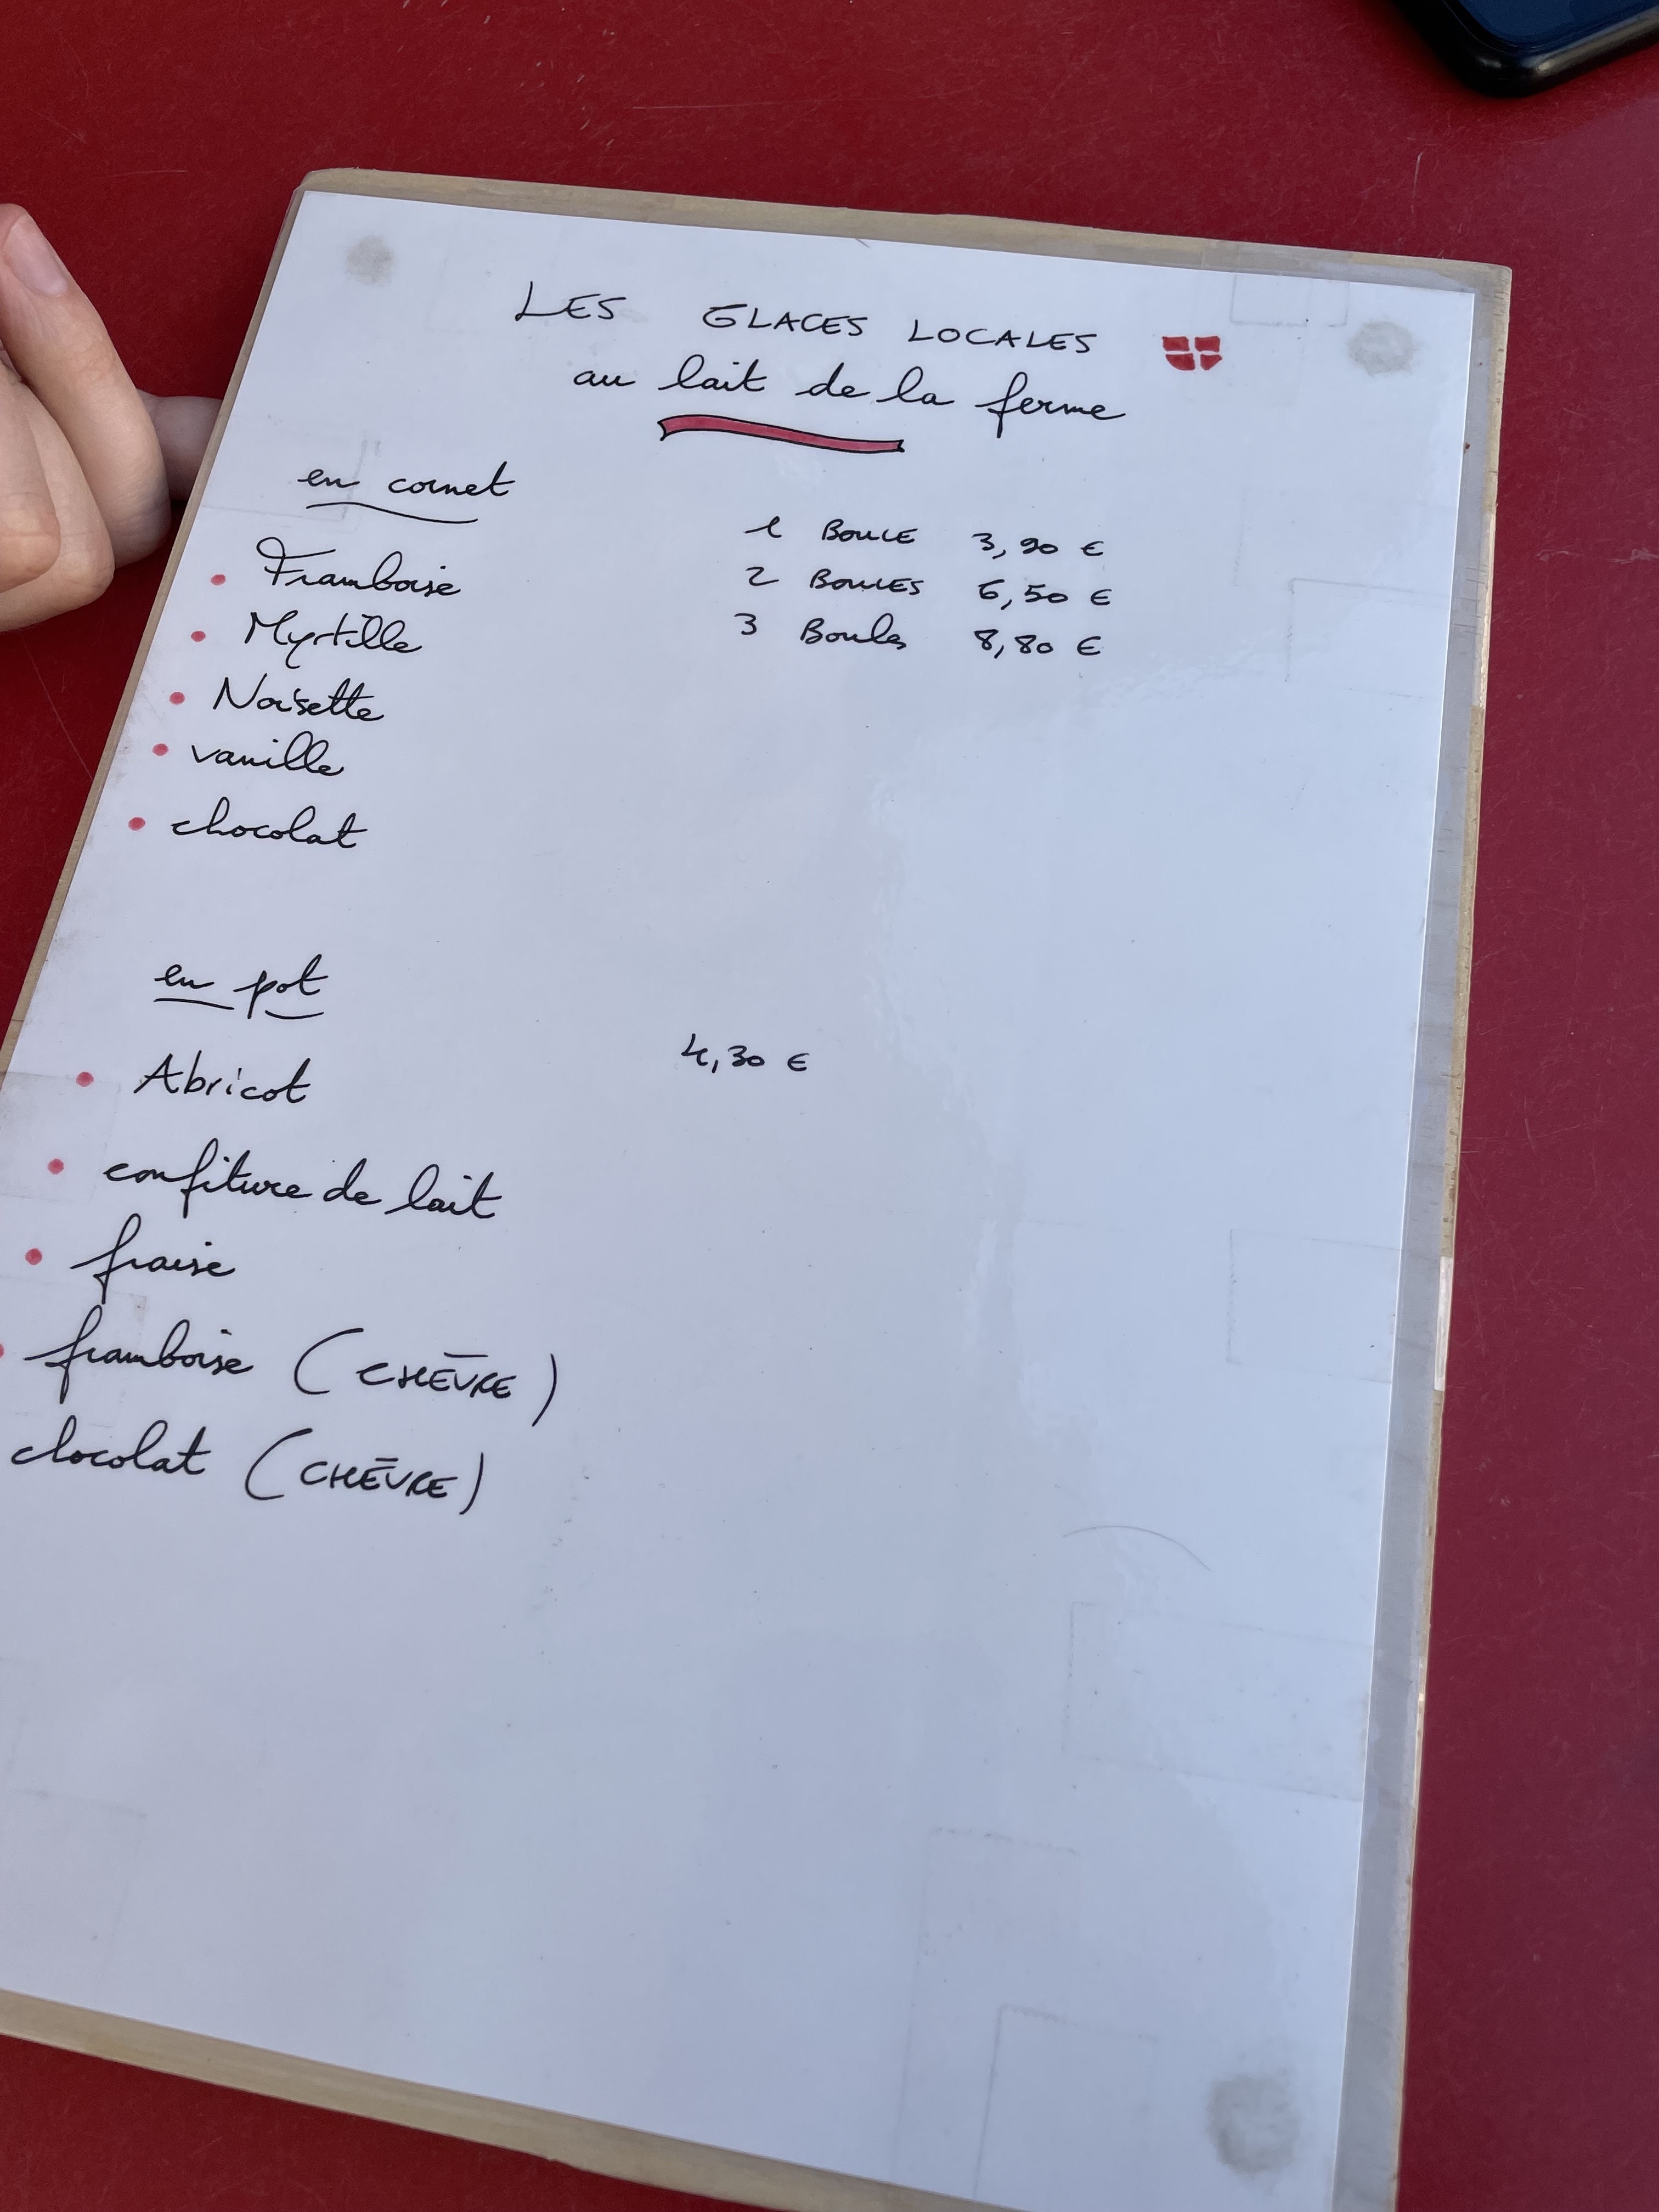 LES GLACES LOCALES
au lait de la ferme
en cornet
1 BOULE 3,90 €
2 BOULES 6,50 €
3 Boules 8,80 €
• Framboise
• Myrtille
• Noisette
• vanille
• chocolat
en pot
4,30 €
• Abricot
• confiture de lait
• fraise
• framboise (CHÈVRE)
chocolat (CHÈVRE)